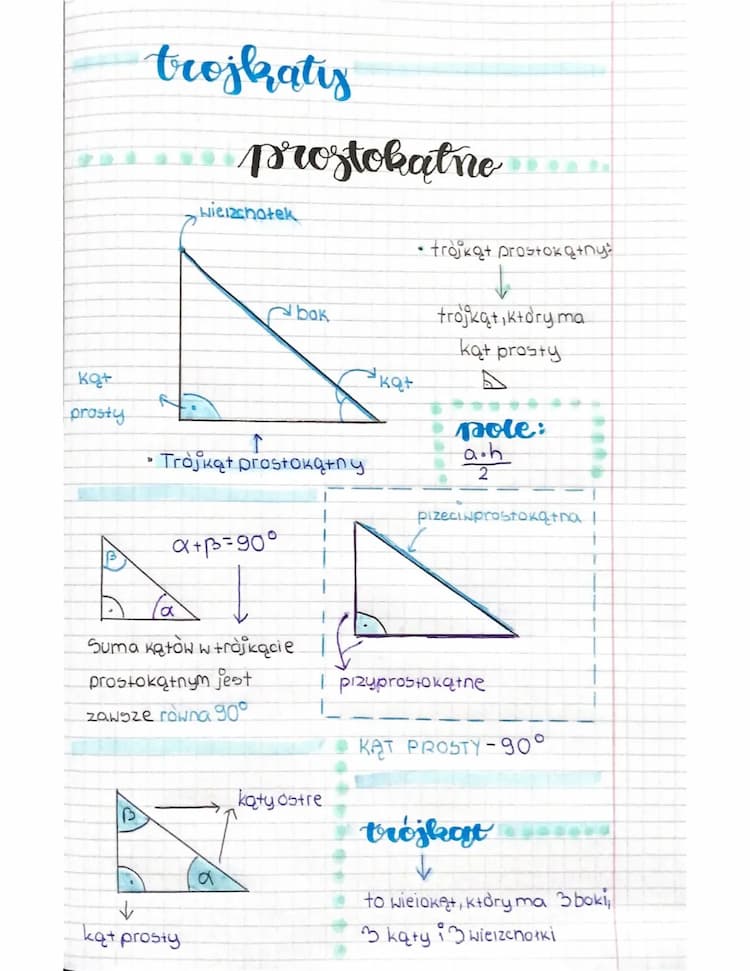 trojkąty
prostokątne
wierzchołek
bok
kąt
kąt
prosty
• Trójkąt prostokątny
• trójkąt prostokątny:
trójkąt, który ma
kąt prosty
pole:
a·h
2
β
α
α+β=90°
Suma kątów w trójkącie
prostokątnym jest
zawsze równa 90°
przeciwprostokątna
przyprostokątne
KĄT PROSTY - 90°
β
α
kąty ostre
kąt prosty
trójkąt
to wielokąt, który ma 3 boki,
3 kąty i 3 wierzchołki